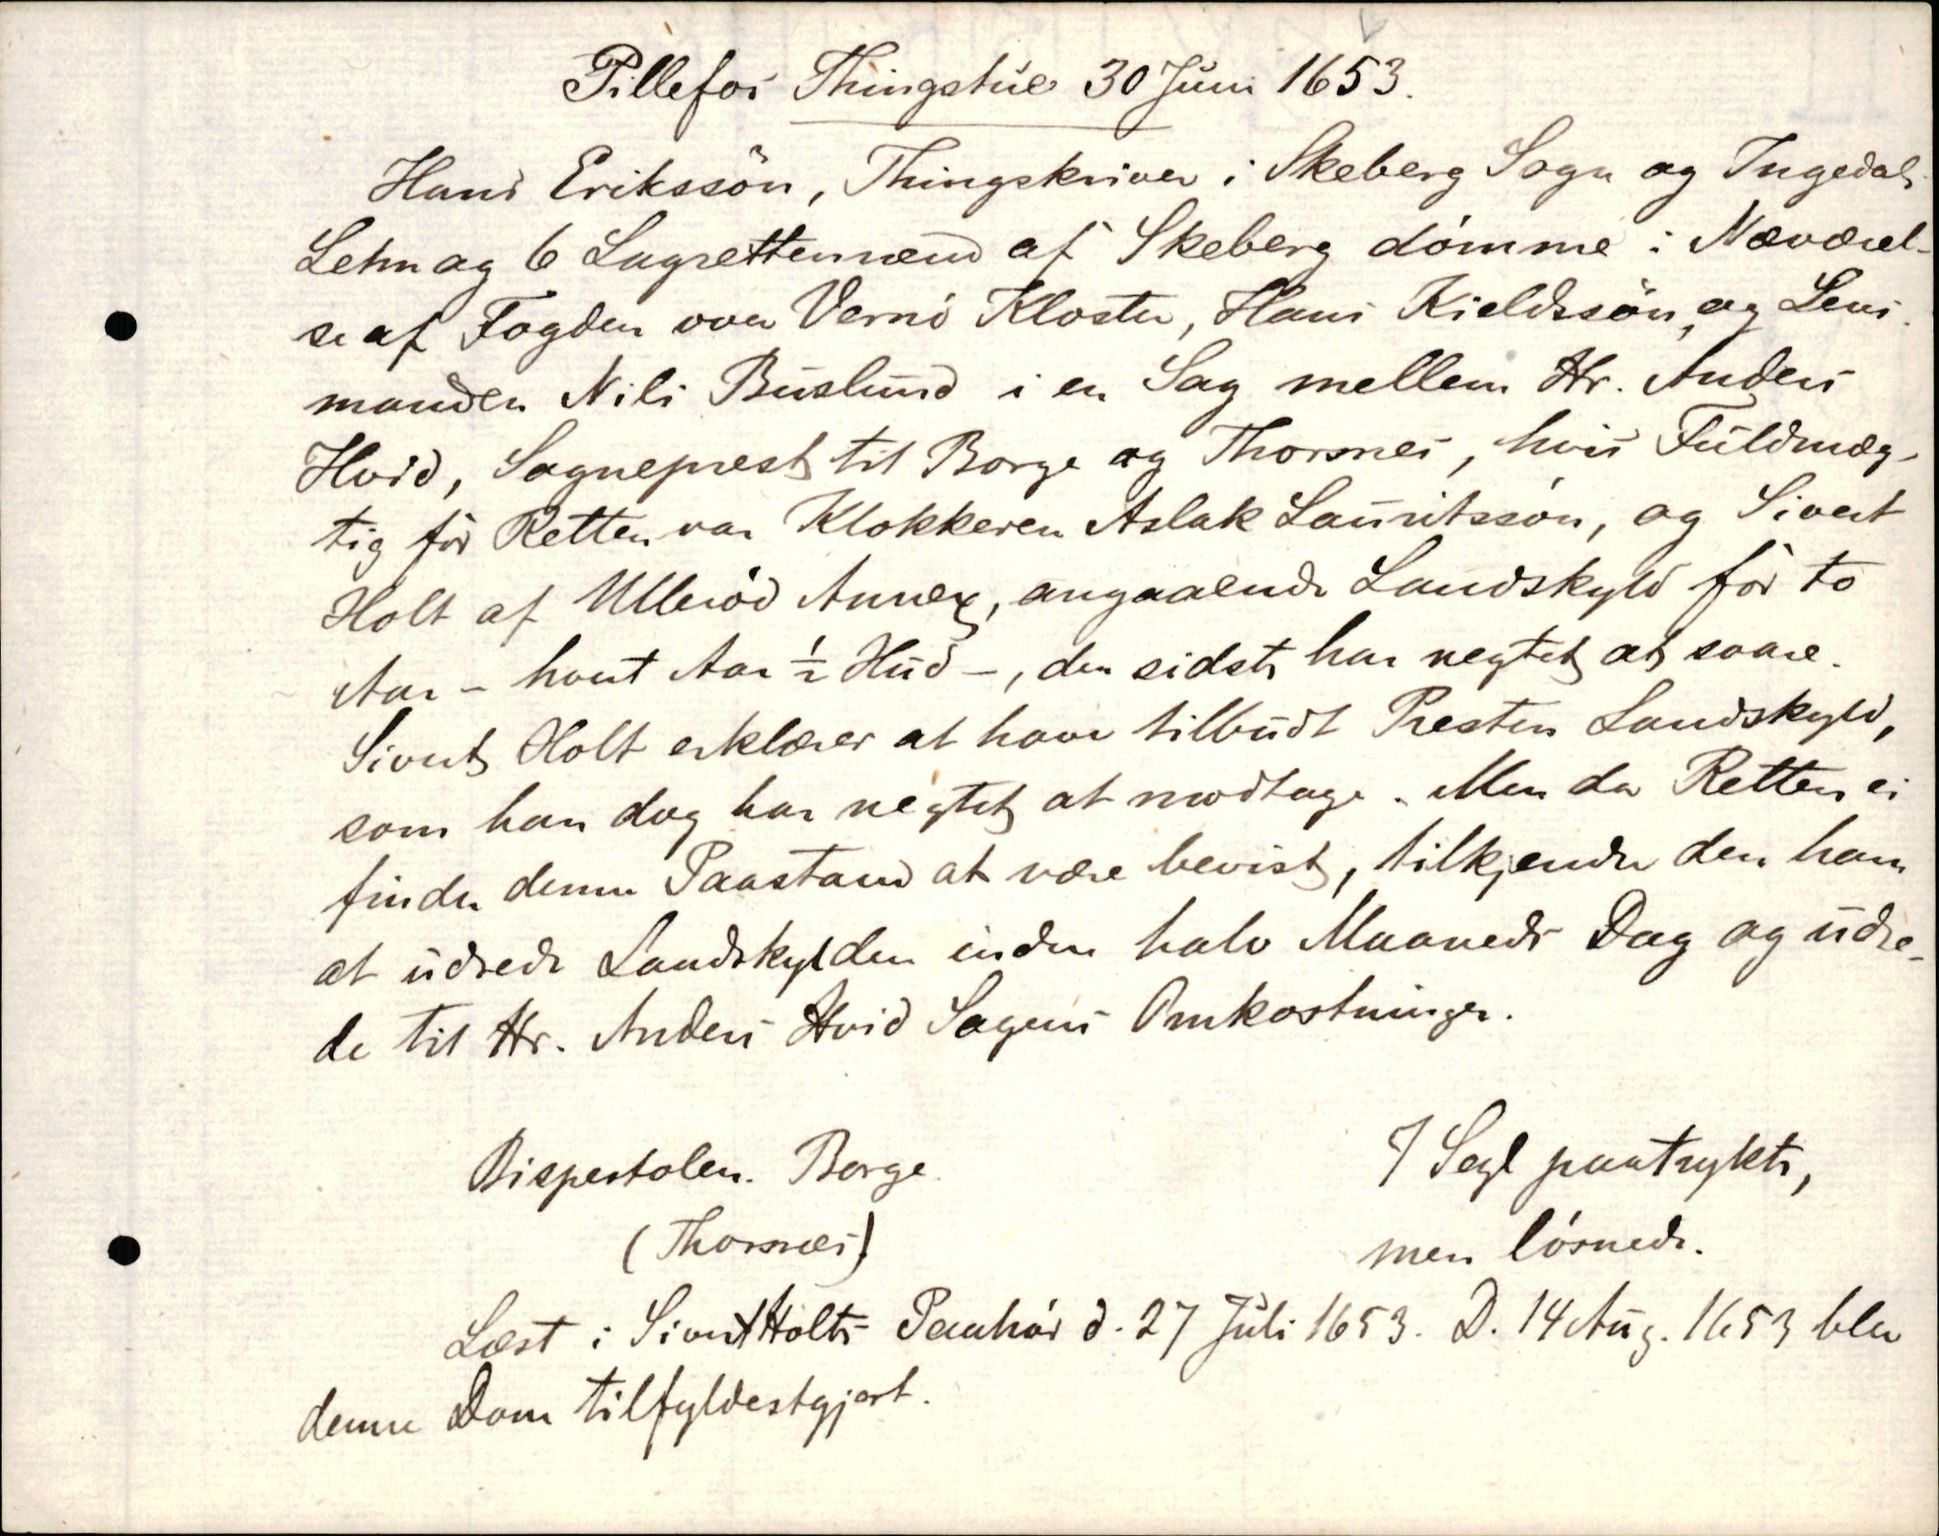 Pillefos Thingstue 30 Juni 1653.
Hans Erikssön, Thingskriver i Skeberg Sogn og Ingedals
Lehn og 6 Lagrettemænd af Skeberg dömme i Nærværel-
se af Fogden over Vernö Kloster, Hans Kieldssön, og Lens-
manden Nils Buslund i en Sag mellem Hr. Anders
Hvid, Sogneprest til Borge og Thorsnes, hvis Fuldmæg-
tig för Retten var Klokkeren Aslak Lauritssön, og Sivert
Holt af Ulleröd Annex, angaaende Landskyld för to
Aar - hvert Aar ½ Hud -, den sidste har negtet at svare.
Sivert Holt erklærer at have tilbudt Presten Landskyld,
som han dog har negtet at modtage. Men da Retten ei
finder denne Paastand at være bevist, tilkjender den ham
at udrede Landskylden inden halv Maaneds Dag og udre-
de til Hr. Anders Hvid Sagens Omkostninger.
Bispestolen. Borge.
(Thorsnes)
7 Segl paatrykte,
men lösnede.
Læst i Sivert Holts Paahör d. 27 Juli 1653. D. 14 Aug. 1653 blev
denne Dom tilfyldestgjort.